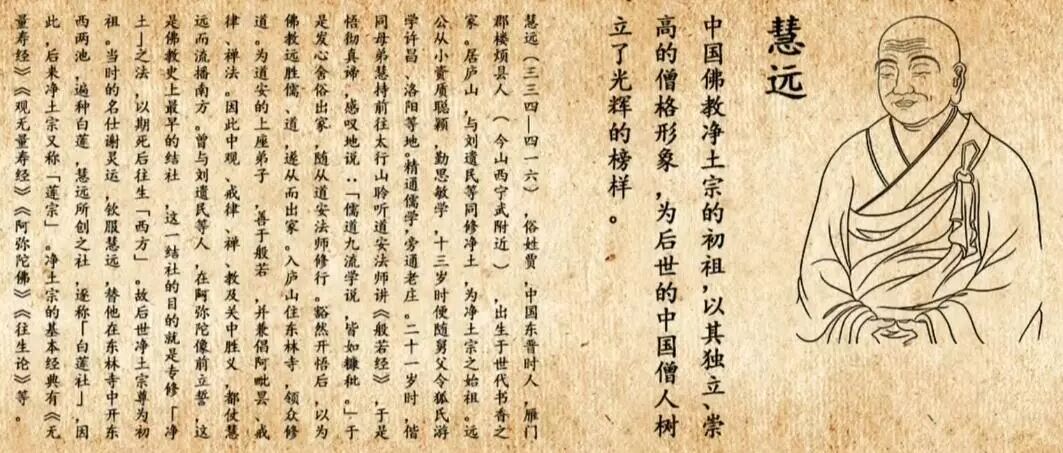 慧远
中国佛教净土宗的初祖，以其独立、崇
高的僧格形象，为后世的中国僧人树
立了光辉的榜样。
慧远（三三四—四一六），俗姓贾，中国东晋时人，雁门
郡楼烦县人（今山西宁武附近），出生于世代书香之
家。居庐山，与刘遗民等同修净土，为净土宗之始祖。远
公从小资质聪颖，勤思敏学，十三岁时便随舅父令狐氏游
学许昌、洛阳等地。精通儒学，旁通老庄。二十一岁时，偕
同母弟慧持前往太行山聆听道安法师讲《般若经》，于是
悟彻真谛，感叹地说：「儒道九流学说，皆如糠秕。」于
是发心舍俗出家，随从道安法师修行。豁然开悟后，以为
佛教远胜儒、道，遂从而出家。入庐山住东林寺，领众修
道。为道安的上座弟子，善于般若，并兼倡阿毗昙、戒
律、禅法。因此中观、戒律、禅、教及关中胜义，都仗慧
远而流播南方。曾与刘遗民等人，在阿弥陀像前立誓，这
是佛教史上最早的结社，这一结社的目的就是专修「净
土」之法，以期死后往生「西方」。故后世净土宗尊为初
祖。当时的名仕谢灵运，钦服慧远，替他在东林寺中开东
西两池，遍种白莲，慧远所创之社，逐称「白莲社」，因
此，后来净土宗又称「莲宗」。净土宗的基本经典有《无
量寿经》《观无量寿经》《阿弥陀佛》《往生论》等。